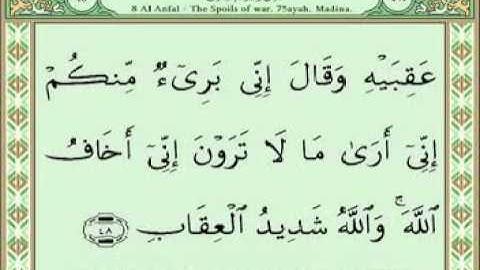 8 Al Anfal - The Spoils of war, 75ayah, Madina.
عَقِبَيْهِ وَقَالَ إِنِّى بَرِىٓءٌ مِّنكُمْ
إِنِّىٓ أَرَىٰ مَا لَا تَرَوْنَ إِنِّىٓ أَخَافُ
ٱللَّهَ ۚ وَٱللَّهُ شَدِيدُ ٱلْعِقَابِ ٤٨